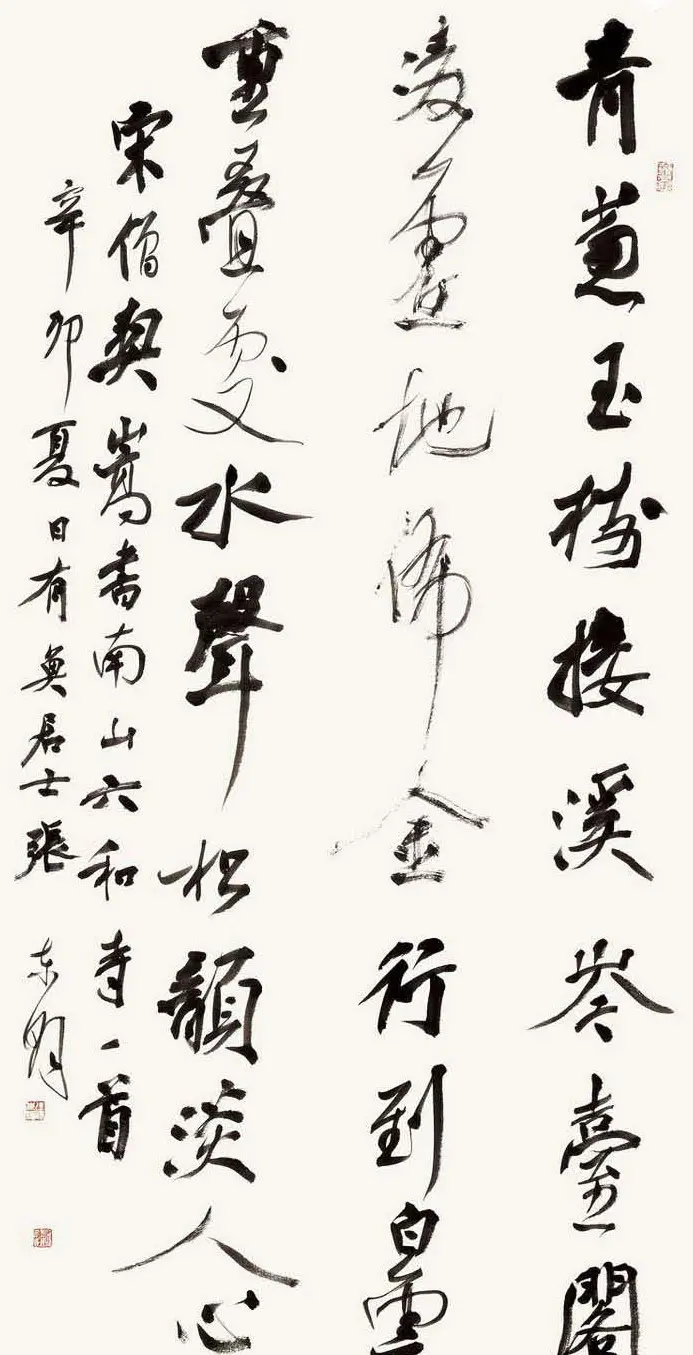 青蔥玉樹接溪岑臺閣
凌虛地佈金行到白雲
重疊處水聲松韻淡人心
宋僧契嵩書南山六和寺一首
辛卯夏日有居士張东明